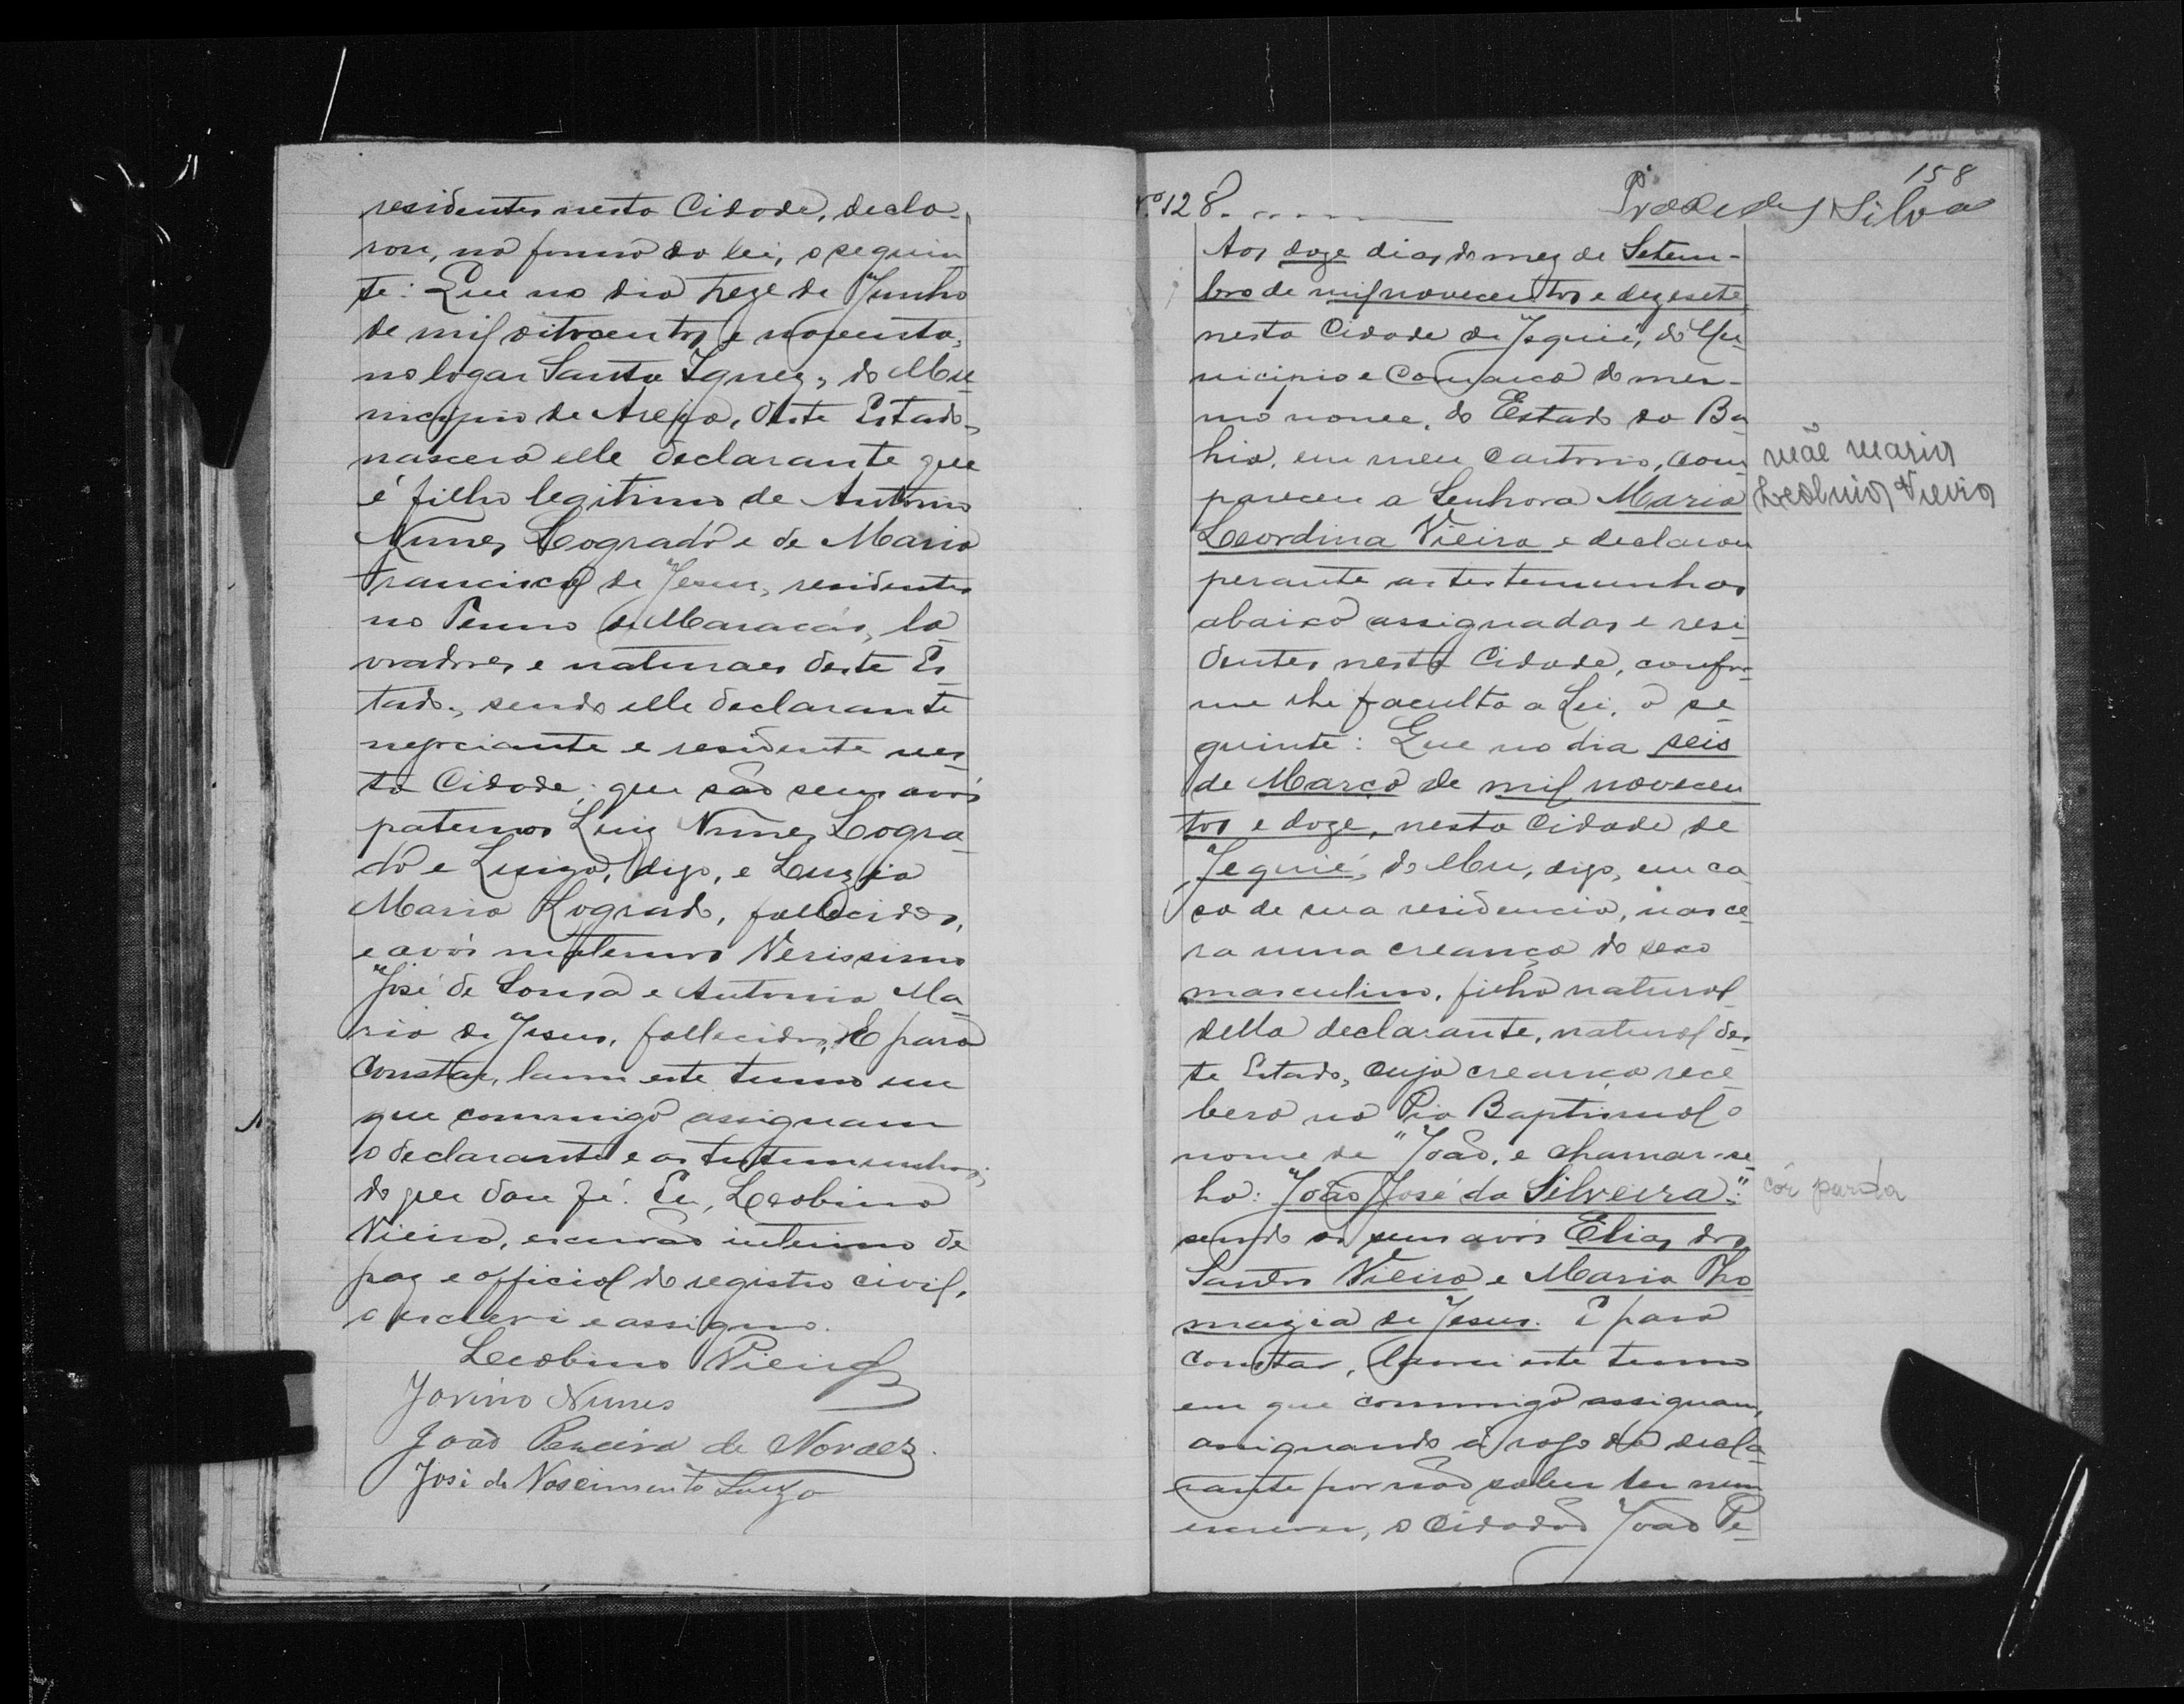 residentes nesta Cidade, decla-
rou, na forma da lei, o seguin
te: Que no dia treze de Junho
de mil oitocentos e noventa,
no logar Santa Ignez, do Mu
nicipio de Areia, deste Estado,
nascera elle declarante que
é filho legitimo de Antonio
Nunes Logrado e de Maria
Francisca de Jesus, residentes
no Termo de Maracás, la
vradores e naturaes deste Es
tado, sendo elle declarante
negociante e residente nes
ta Cidade; que são seus avós
paternos Luiz Nunes Logra
do e Luiza, digo, e Luzia
Maria Logrado, fallecidos,
e avós maternos Verissimo
José de Sousa e Antonia Ma
ria de Jesus, fallecidos. E para
constar, lavrei este termo em
que commigo assignam
o declarante e as testemunhas;
do que dou fé. Eu, Leobino
Vieira, escrivão interino de
paz e official do registro civil,
o escrevi e assigno.
Leobino Vieira
Jovino Nunes
João Pereira de Novaes.
José do Nascimento Souza
158
Nº 128. Silva
Aos doze dias do mez de Setem-
bro de mil novecentos e dezesete,
nesta Cidade de Jequié, do Mu
nicipio e Comarca do mes-
mo nome, do Estado da Ba
hia, em meu cartorio, com
pareceu a Senhora Maria
mãe maria
Leordina Vieira e declarou
perante as testemunhas
abaixo assignadas e resi
dentes nesta Cidade, confor
me lhe faculta a Lei, o se
guinte: Que no dia seis
de Março de mil novecen
tos e doze, nesta Cidade de
Jequié, do Mu, digo, em ca
sa de sua residencia, nasce
ra uma creança do sexo
masculino, filho natural
della declarante, natural des
te Estado, cuja creança rece
bera na Pia Baptismal o
nome de "João, e chamar-se
ha: "João José da Silveira":
côr parda
sendo os seus avós Elias dos
Santos Vieira e Maria Tho
mazia de Jesus. E para
constar, lavrei este termo
em que commigo assignam,
assignando á rogo da decla
rante por não saber ler nem
escrever, o Cidadão João Pe